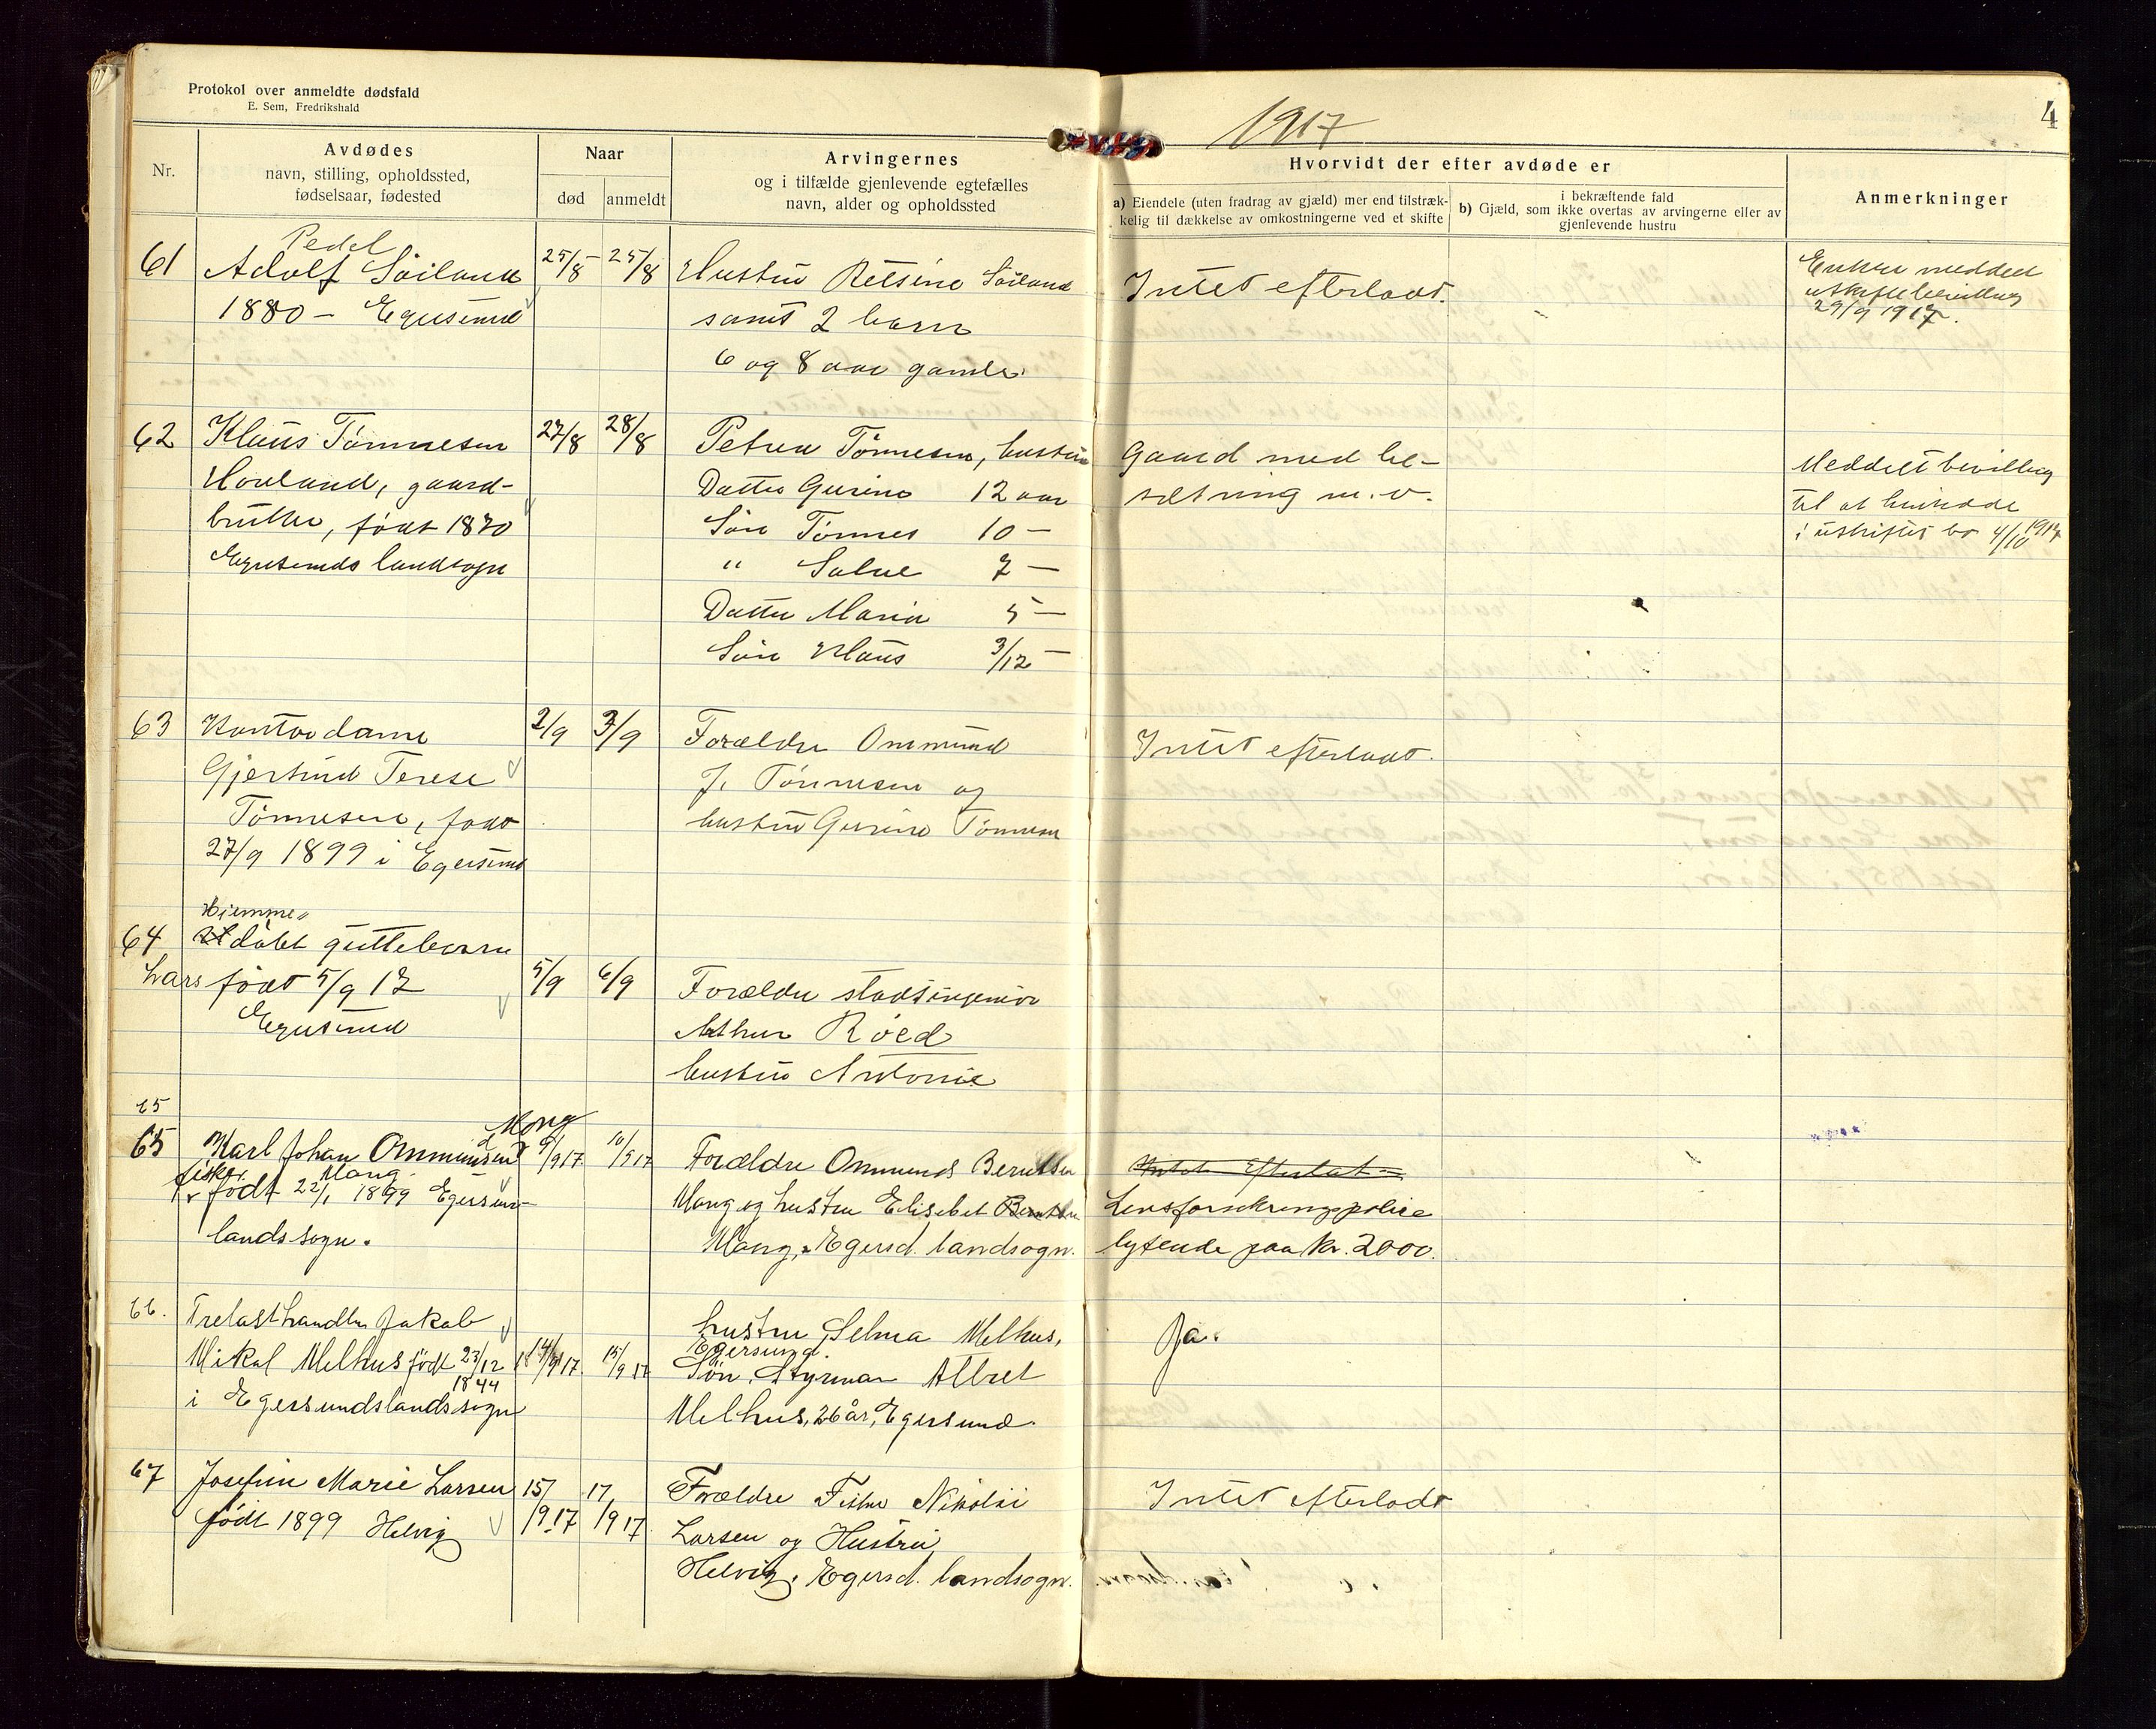 Protokol over anmeldte dødsfald
E. Sem, Fredrikshald
1917
4
Nr.
Avdødes
navn, stilling, opholdssted,
fødselsaar, fødested
Naar
død
anmeldt
Arvingernes
og i tilfælde gjenlevende egtefælles
navn, alder og opholdssted
Hvorvidt der efter avdøde er
a) Eiendele (uten fradrag av gjæld) mer end tilstræk-
kelig til dækkelse av omkostningerne ved et skifte
i bekræftende fald
b) Gjæld, som ikke overtas av arvingerne eller av
gjenlevende hustru
Anmerkninger
Pedel
61 Adolf Söiland 25/8 25/8 Hustru Söiland
1880 — Egersund
samt 2 barn
6 og 8 aar gamle
Intet efterladt.
Enken meddelt
uskiftebevilling
29/9 1917.
62 Klaus Tönnesen 27/8 28/8 Petra Tönnesen, hustru
Hovland, gaard-
bruker, födt 1870
Egersunds landsogn
Datter Gurine 12 aar
Sön Tönnes 10 —
" Salve 7 —
Datter Maria 5 —
Sön Klaus 3/12 —
Gaard med be-
sætning m.v.
Meddelt bevilling
til at hensidde
i uskiftet bo 4/10 1917
63 Kontordame 2/9 3/9 Forældre Ommund
Gjertrud Terese
Tönnesen, födt
27/9 1899 i Egersund
J. Tönnesen og
hustru Gurine Tönnesen
Intet efterladt.
Hjemme"
64 döbt guttebarn
Lars födt 5/9 17 5/9 6/9 Forældre stadsingeniör
Egersund
Arthur Röed
hustru Antonie
65
Mong
65 Karl Johan Ommundsen 9/9 17 10/9 17 Forældre Ommund Berntsen
fisker Mong
födt 22/1 1899 Egersund
landssogn.
Mong og hustru Elisebet Berntsen
Mong, Egersd. landsogn.
Intet Efterlat
Livsforsikringspolice
lydende paa kr. 2000.
66. Trelasthandler Jakob
Mikal Melhus födt 23/12 14/9 17. 15/9 17
1844
i Egersundslandssogn
hustru, Selma Melhus,
Egersund.
Sön, Styrman Albret
Melhus, 26 år, Egersund.
Ja.
67 Josefine Marie Larsen 15/9 17 17/9 17
födt 1899 Helvig
Forældre Fisker Nikolai
Larsen og Hustru
Helvig, Egersd. landsogn.
Intet efterladt